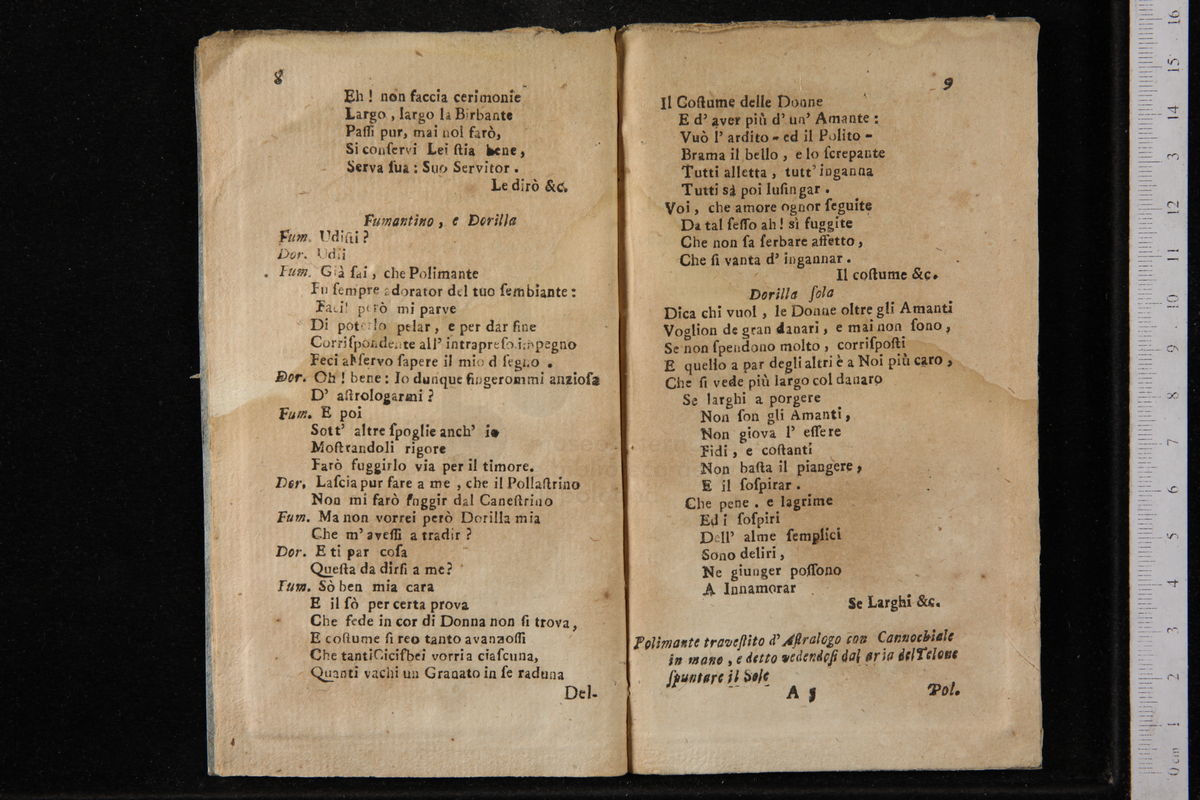 8
Eh ! non faccia cerimonie
Largo , largo la Birbante
Paſſi pur, mai nol farò,
Si conſervi Lei ſtia bene,
Serva ſua : Suo Servitor .
Le dirò &c.
Fumantino , e Dorilla
Fum. Udiſti ?
Dor. Udii
Fum. Già ſai , che Polimante
Fu ſempre adorator del tuo ſembiante :
Facil però mi parve
Di poterlo pelar , e per dar fine
Corriſpondente all' intrapreſo impegno
Feci al ſervo ſapere il mio d ſegno .
Dor. Oh ! bene : Io dunque fingerommi anzioſa
D' aſtrologarmi ?
Fum. E poi
Sott' altre ſpoglie anch' io
Moſtrandoli rigore
Farò fuggirlo via per il timore.
Dor. Laſcia pur fare a me , che il Pollaſtrino
Non mi farò fuggir dal Caneſtrino
Fum. Ma non vorrei però Dorilla mia
Che m' aveſſi a tradir ?
Dor. E ti par coſa
Queſta da dirſi a me ?
Fum. Sò ben mia cara
E il ſò per certa prova
Che fede in cor di Donna non ſi trova,
E coſtume ſi reo tanto avanzoſſi
Che tanti Ciciſbei vorria ciaſcuna,
Quanti vachi un Granato in ſe raduna
Del-
9
Il Coſtume delle Donne
E d' aver più d' un' Amante :
Vuò l' ardito - ed il Polito -
Brama il bello , e lo ſcrepante
Tutti alletta , tutt' inganna
Tutti sà poi luſingar .
Voi , che amore ognor ſeguite
Da tal ſeſſo ah ! sì fuggite
Che non ſa ſerbare affetto ,
Che ſi vanta d' ingannar .
Il coſtume &c.
Dorilla ſola
Dica chi vuol , le Donne oltre gli Amanti
Voglion de gran danari , e mai non ſono ,
Se non ſpendono molto , corriſpoſti
E quello a par degli altri è a Noi più caro ,
Che ſi vede più largo col danaro
Se larghi a porgere
Non ſon gli Amanti ,
Non giova l' eſſere
Fidi , e coſtanti
Non baſta il piangere ,
E il ſoſpirar .
Che pene . e lagrime
Ed i ſoſpiri
Dell' alme ſemplici
Sono deliri ,
Ne giunger poſſono
A Innamorar
Se Larghi &c.
Polimante traveſtito d' Aſtralogo con Cannochiale
in mano , e detto vedendoſi dal aria del Telone
ſpuntare il Sole
A 5
Pol.
16
15
14
13
12
11
10
9
8
7
6
5
4
3
2
1
0 cm